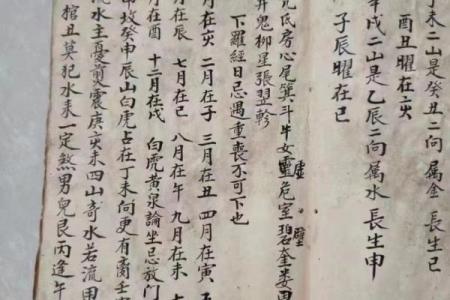 丁未二山是癸丑二向 属金 長生已
酉丑曜在亥
辛戌二山是乙辰二向 属水 長生申
子辰曜在已
氐房心尾箕斗牛女靈危室碧奎娄
虛 壁
井鬼柳星張翌軫
下羅經日忌遇重喪不可下也
月在亥 二月在子 三月在丑 四月在寅 五
月在辰 七月在已 八月在午 九月在未
月在酉 十二月在戌 白虎黄泉論坐忌放门
坟癸申辰山白虎占在丁未向更有
流水主憂煎震庚亥未四山奇水若流用
棺丑莫犯水来一定煞男兒艮丙逢午